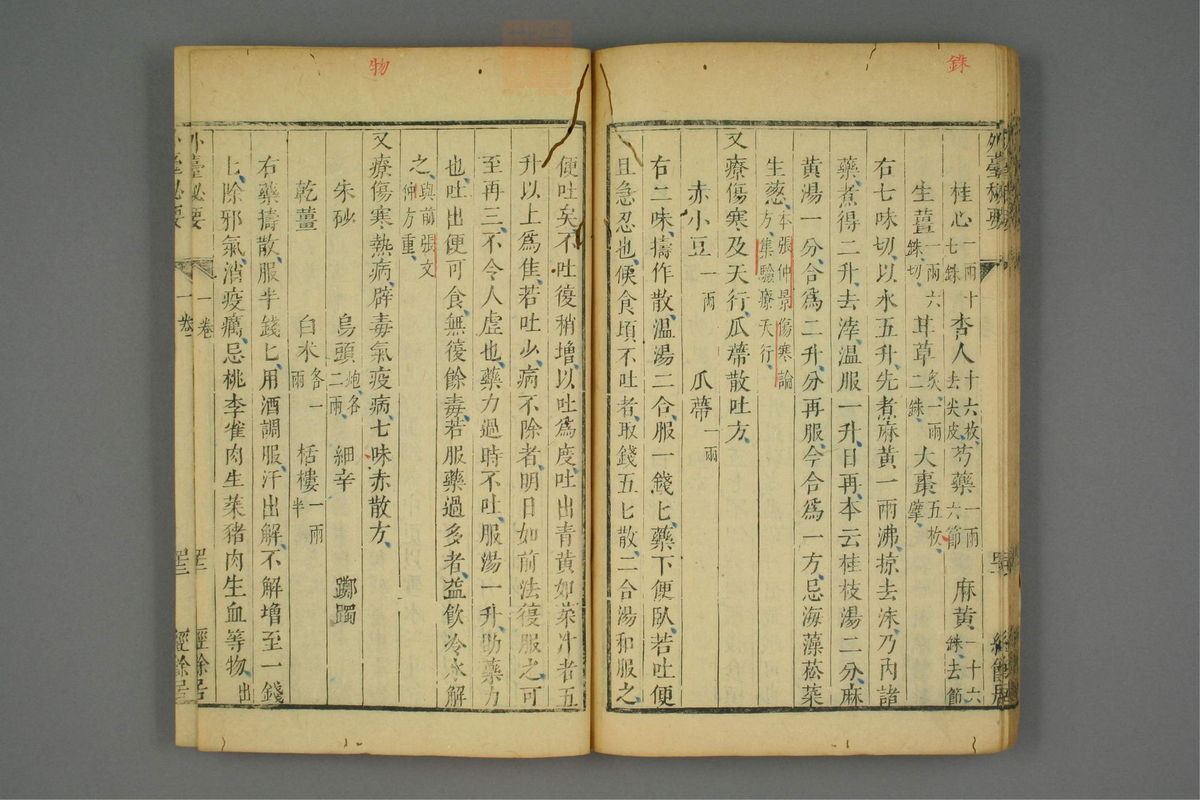 銖
桂心一兩十七銖 杏人十六枚去尖皮 芍藥一兩六節 麻黃一十六銖去節
生薑一兩六銖切 甘草炙一兩二銖 大棗五枚擘
右七味切以水五升先煮麻黃一兩沸掠去沫乃內諸
藥煮得二升去滓溫服一升日再本云桂枝湯二分麻
黃湯一分合爲二升分再服今合爲一方忌海藻菘菜
生葱本張仲景傷寒論方集驗療天行
又療傷寒及天行瓜蔕散吐方
赤小豆一兩 瓜蔕一兩
右二味擣作散溫湯二合服一錢匕藥下便臥若吐便
且急忍也候食頃不吐者取錢五匕散二合湯和服之
物
便吐矣不吐復稍增以吐爲度吐出青黃如菜汁者五
升以上爲佳若吐少病不除者明日如前法復服之可
至再三不令人虛也藥力過時不吐服湯一升助藥力
也吐出便可食無復餘毒若服藥過多者益飲冷水解
之與前張文仲方重
又療傷寒熱病辟毒氣疫病七味赤散方
朱砂 烏頭炮各二兩 細辛 躑躅
乾薑 白朮各一兩 栝樓一兩半
右藥擣散服半錢匕用酒調服汗出解不解增至一錢
匕除邪氣消疫癘忌桃李雀肉生菜豬肉生血等物出
外臺祕要 一卷 經餘居